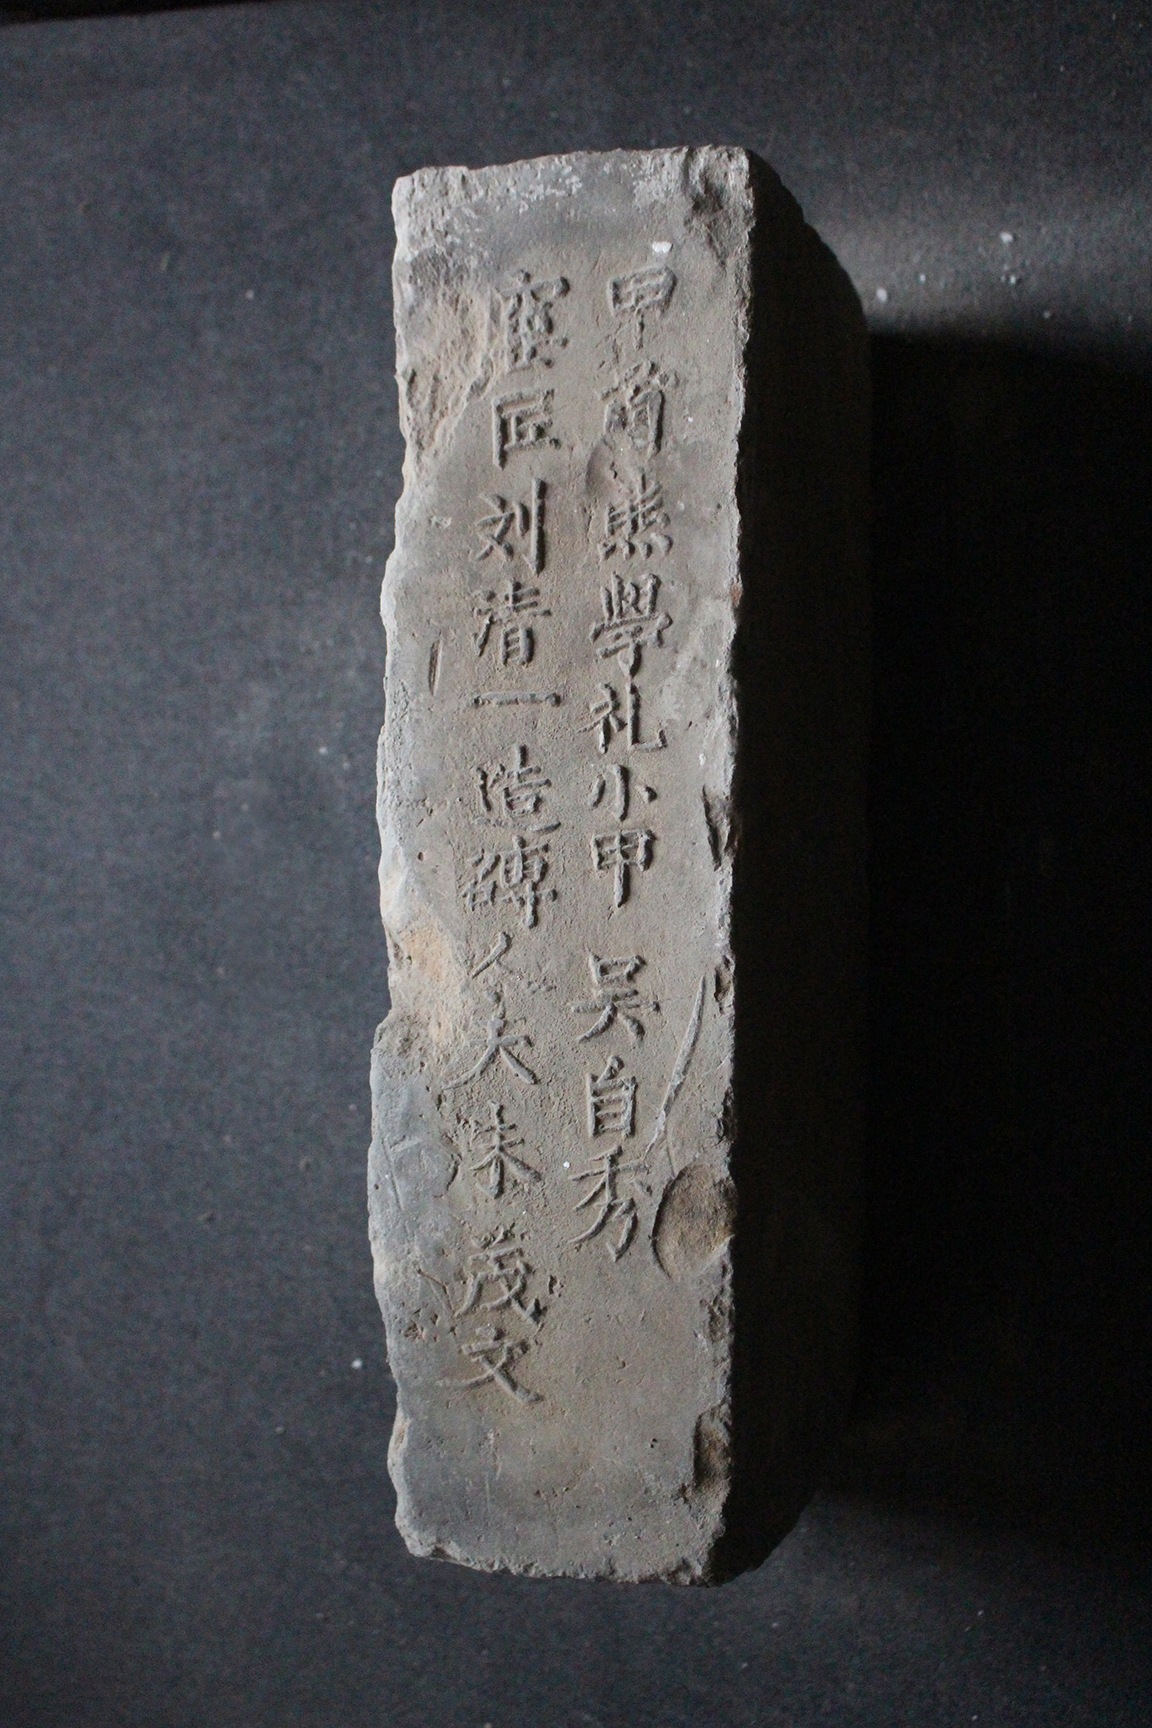 甲首熊學礼小甲吴自秀
窰匠刘清一造磚人夫朱茂文